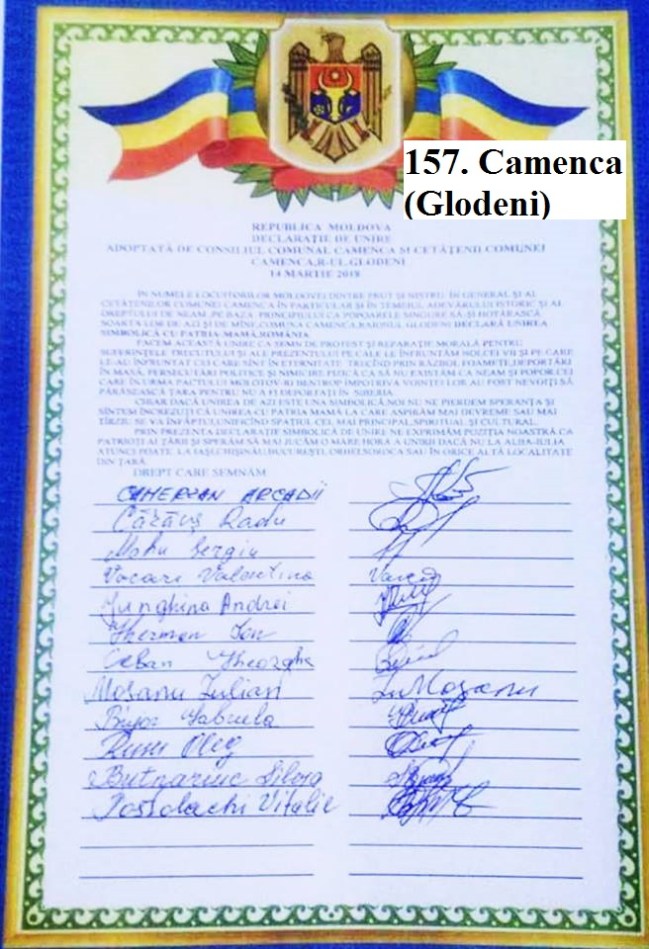 157. Camenca
(Glodeni)
REPUBLICA MOLDOVA
DECLARAȚIE DE UNIRE
ADOPTATĂ DE CONSILIUL COMUNAL CAMENCA SI CETĂȚENII COMUNEI
CAMENCA,R-UL.GLODENI
14 MARTIE 2018
ÎN NUMELE LOCUITORILOR MOLDOVEI DINTRE PRUT ȘI NISTRU, ÎN GENERAL ȘI AL
CETĂȚENILOR COMUNEI CAMENCA ÎN PARTICULAR ȘI ÎN TEMEIUL ADEVĂRULUI ISTORIC ȘI AL
DREPTULUI DE NEAM, PE BAZA PRINCIPIULUI CA POPOARELE SINGURE SĂ-ȘI HOTĂRASCĂ
SOARTA LOR DE AZI ȘI DE MÎINE,COMUNA CAMENCA,RAIONUL GLODENI DECLARĂ UNIREA
SIMBOLICĂ CU PATRIA-MAMĂ,ROMÂNIA
FACEM ACEASTĂ UNIRE CA SEMN DE PROTEST ȘI REPARAȚIE MORALĂ PENTRU
SUFERINȚELE TRECUTULUI ȘI ALE PREZENTULUI PE CALE LE ÎNFRUNTĂM NOI CEI VII ȘI PE CARE
LE-AU ÎNFRUNTAT CEI CARE SÎNT ÎN ETERNITATE TRECÎND PRIN RĂZBOI, FOAMETE,DEPORTĂRI
ÎN MASĂ, PERSECUTĂRI POLITICE ȘI NIMICIRE FIZICĂ CA SĂ NU EXISTĂM CA NEAM ȘI POPOR.CEI
CARE ÎN URMA PACTULUI MOLOTOV-RIBENTROP ÎMPOTRIVA VOINȚEI LOR AU FOST NEVOIȚI SĂ
PĂRĂSEASCĂ ȚARA PENTRU NU A FI DEPORTAȚI ÎN SIBERIA.
CHIAR DACĂ UNIREA DE AZI ESTE UNA SIMBOLICĂ,NOI NU NE PIERDEM SPERANȚA ȘI
SÎNTEM ÎNCREZUȚI CĂ UNIREA CU PATRIA MAMĂ LA CARE ASPIRĂM MAI DEVREME SAU MAI
TÎRZIU SE VA ÎNFĂPTUI,UNIFICÎND SPAȚIUL CEL MAI PRINCIPAL,SPIRITUAL ȘI CULTURAL.
PRIN PREZENTA DECLARAȚIE SIMBOLICĂ DE UNIRE NE EXPRIMĂM POZIȚIA NOASTRĂ CA
PATRIOȚI AL ȚĂRII ȘI SPERĂM SĂ MAI JUCĂM O MARE HORA A UNIRII DACĂ NU LA ALBA-IULIA
ATUNCI POATE LA IAȘI,CHIȘINĂU,BUCUREȘTI, ORHEI,SOROCA SAU ÎN ORICE ALTĂ LOCALITATE
DIN ȚARĂ.
DREPT CARE SEMNĂM
CAMERZAN ARCADII
Cărăuș Radu
Mahu Sergiu
Vacari Valentina
Junghina Andrei
Gherman Ion
Ceban Gheorghe
Moșanu Iulian Iu Moșanu
Bujor Gabriela
Rusu Oleg
Butnariuc Silvia
Postolachi Vitalie